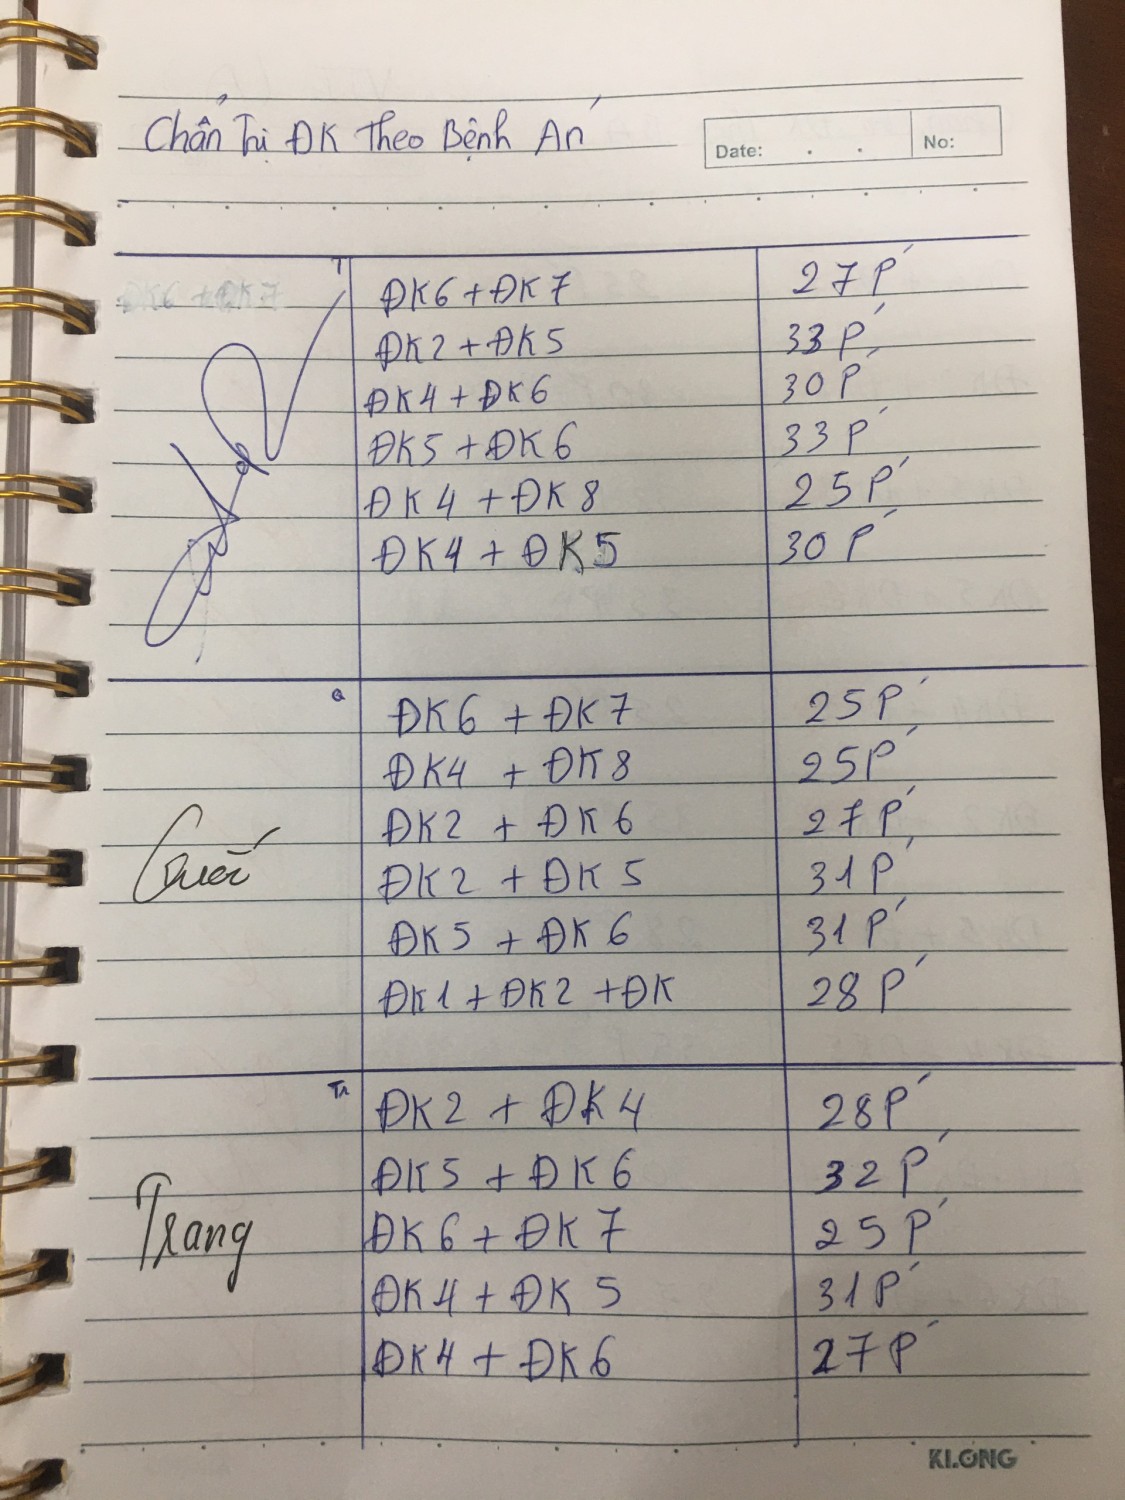 Chẩn Trị ĐK Theo Bệnh Án
Date: . . No:
T
ĐK6 + ĐK7 27 P'
ĐK2 + ĐK5 33 P'
ĐK4 + ĐK6 30 P'
ĐK5 + ĐK6 33 P'
ĐK4 + ĐK8 25 P'
ĐK4 + ĐK5 30 P'
Q
ĐK6 + ĐK7 25 P'
ĐK4 + ĐK8 25 P'
ĐK2 + ĐK6 27 P'
ĐK2 + ĐK5 31 P'
ĐK5 + ĐK6 31 P'
ĐK1 + ĐK2 + ĐK 28 P'
Tr
ĐK2 + ĐK4 28 P'
ĐK5 + ĐK6 32 P'
Trang ĐK6 + ĐK7 25 P'
ĐK4 + ĐK5 31 P'
ĐK4 + ĐK6 27 P'
KLONG